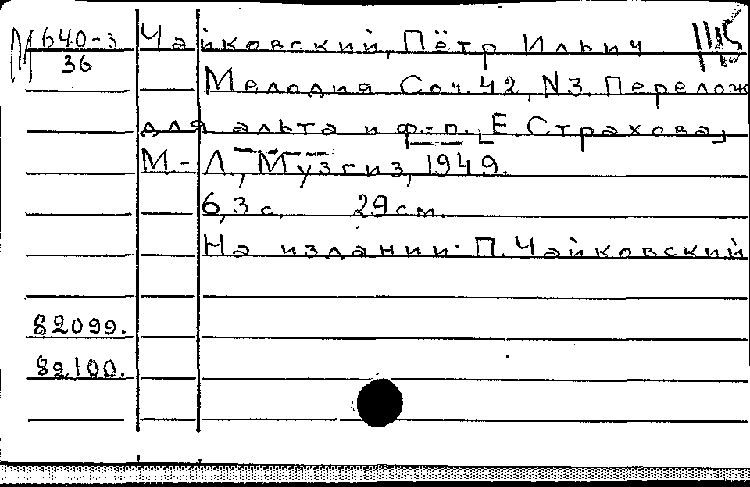 М 640-3 Чайковский, Пётр Ильич
36
Мелодия Соч. 42, N3. Перелож
для альта и ф.-п. [Е. Страхова]
М.-Л., Музгиз, 1949.
6,3 с. 29 см.
На издании: П. Чайковский
82099.
82100.